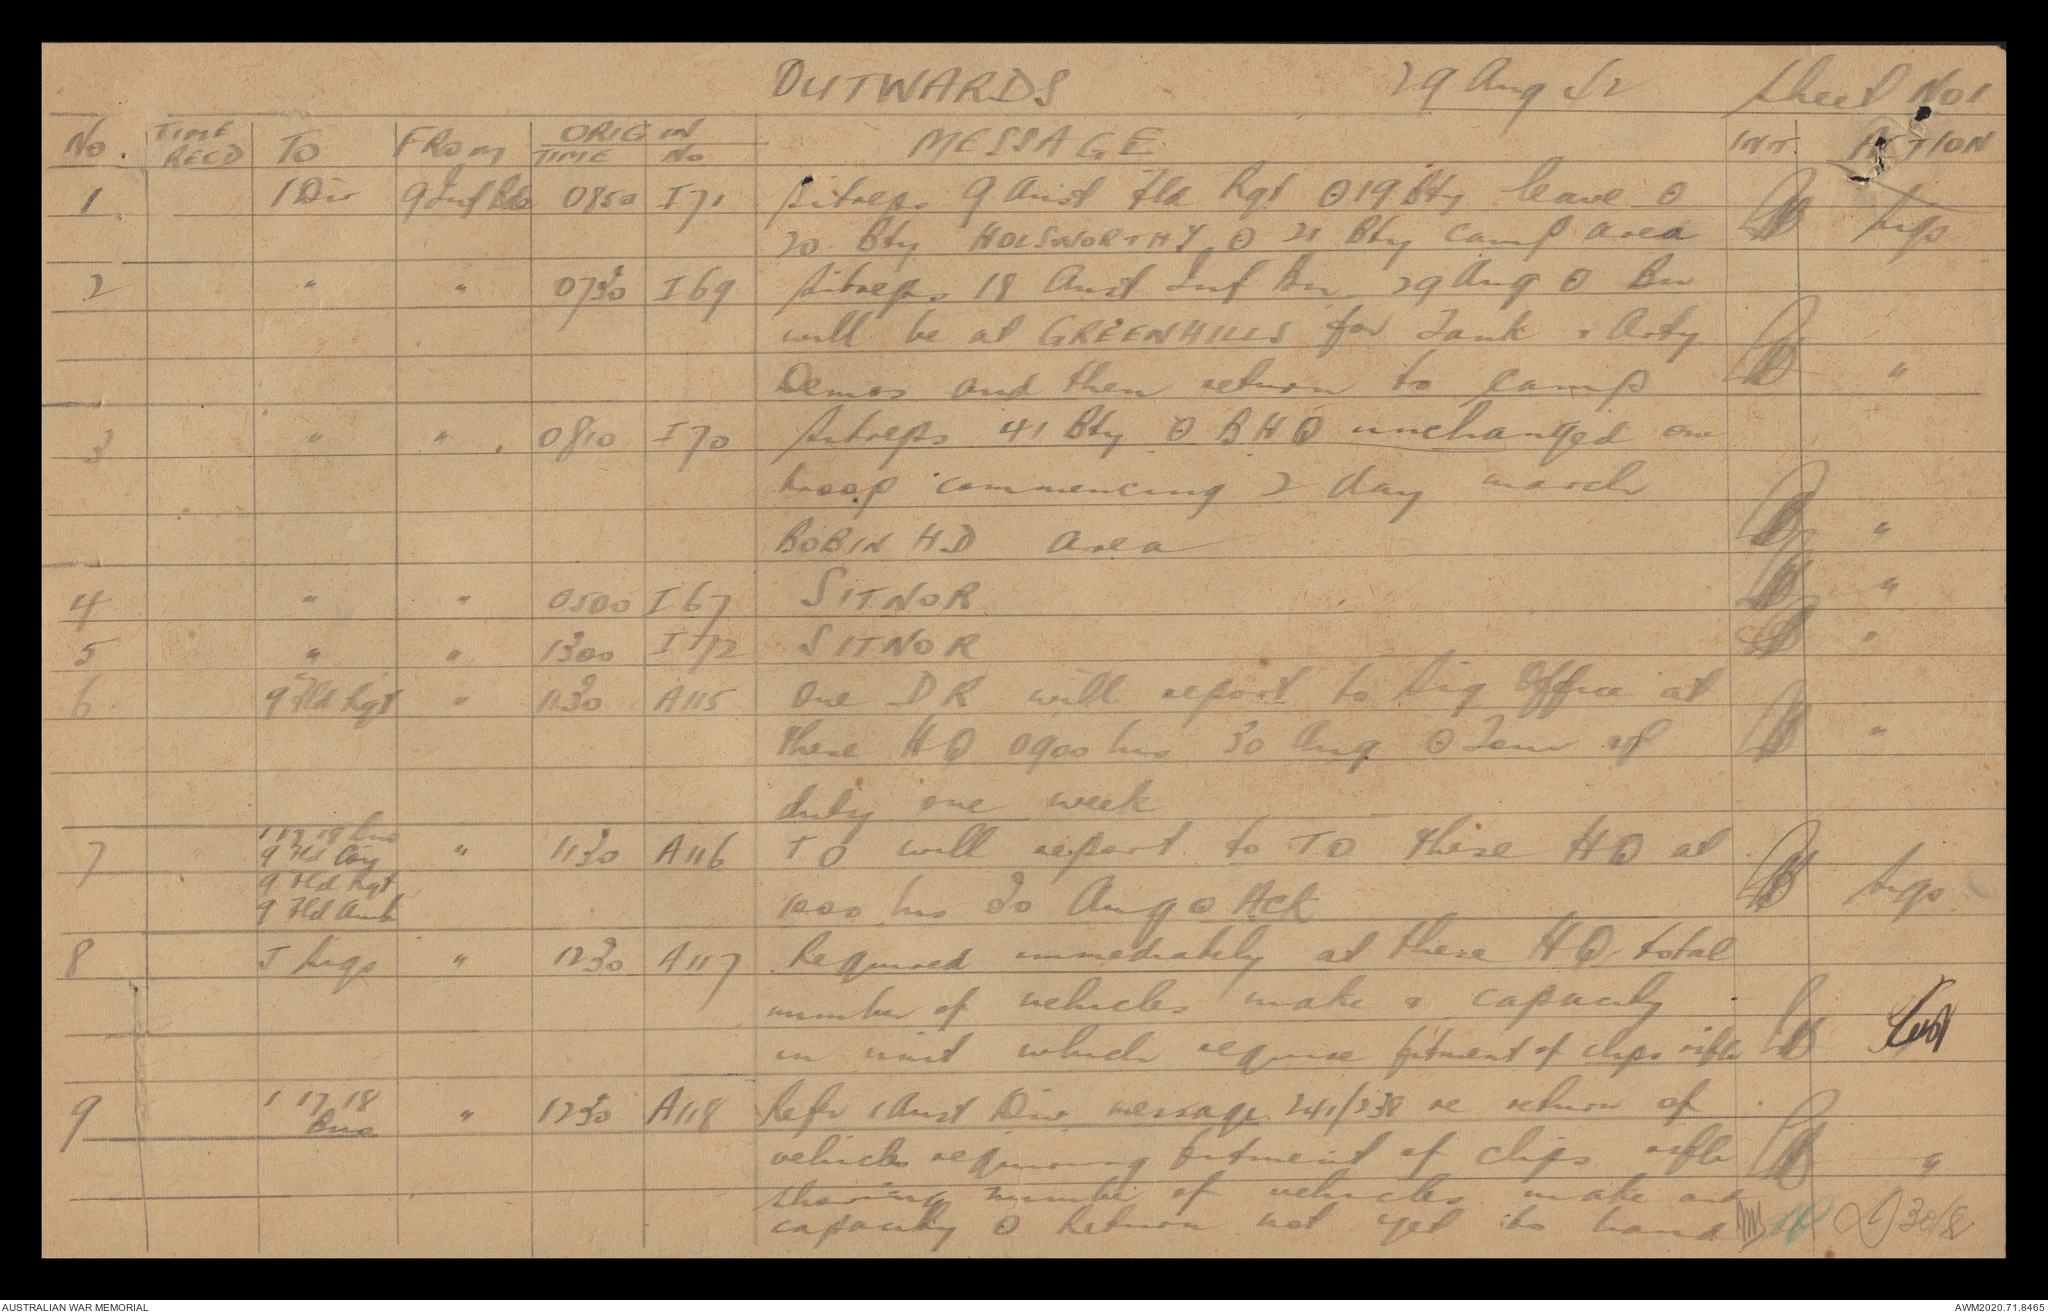 OUTWARDS 29 Aug 52 Sheet No 1
No. TIME RECD TO FROM ORIGIN TIME No MESSAGE INT. ACTION
1 1 Div 9 Inf Bde 0850 I71 Sitreps 9 Aust Fld Rgt O 19 Bty leave O Sigs
20 Bty HOLSWORTHY O 21 Bty camp area
2 " " 0730 I69 Sitreps 18 Aust Inf Bn 29 Aug O Bn
will be at GREENHILLS for Tank & Arty
Demos and then return to camp "
3 " " 0810 I70 Sitreps 41 Bty O BHQ unchanged one
troop commencing 2 day march
BOBIN HD area "
4 " " 0500 I67 SITNOR "
5 " " 1300 I72 SITNOR "
6 9 Fld Rgt " 1130 A115 One DR will report to Sig Office at
these HQ 0900 hrs 30 Aug O Tour of "
duty one week
7 1 17 18 Bns
9 Fld Coy " 1130 A116 TO will report to TO these HQ at
9 Fld Rgt
9 Fld Amb 1000 hrs 30 Aug O Ack Sigs
8 J Sigs " 1230 A117 Required immediately at these HQ total
number of vehicles make & capacity
in unit which require fitment of clips rifle
9 1 17 18 Bns " 1230 A118 Refer 1 Aust Div message 241/238 re return of
vehicles requiring fitment of clips rifle "
showing number of vehicles make and
capacity O Return not yet to hand 30/8
AUSTRALIAN WAR MEMORIAL AWM2020.71.8465